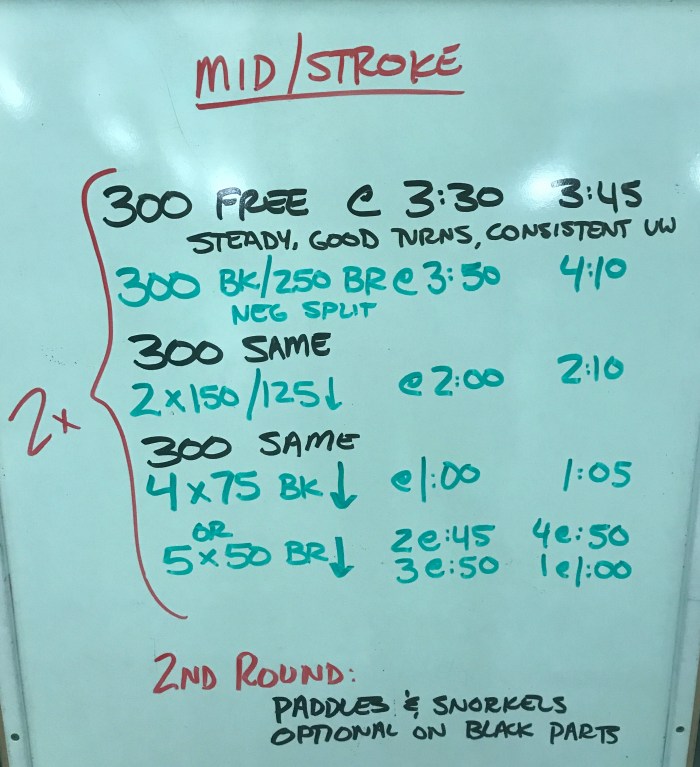 MID/STROKE
300 FREE @ 3:30 3:45
STEADY, GOOD TURNS, CONSISTENT UW
300 BK/250 BR @ 3:50 4:10
NEG SPLIT
300 SAME
2x150/125↓ @ 2:00 2:10
2x
300 SAME
4x75 BK ↓ @1:00 1:05
OR
5x50 BR↓ 2@:45 4@:50
3@:50 1@1:00
2ND ROUND:
PADDLES & SNORKELS
OPTIONAL ON BLACK PARTS